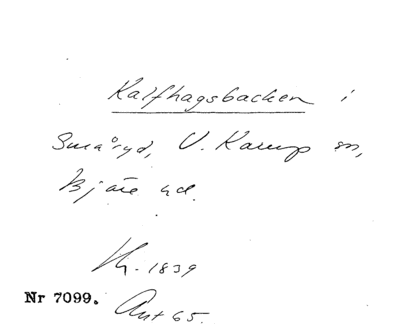 Kalfhagsbacken i
Småryd, V. Karup sn,
Bjäre hd.
Hg. 1839
Nr 7099. Ant 65.